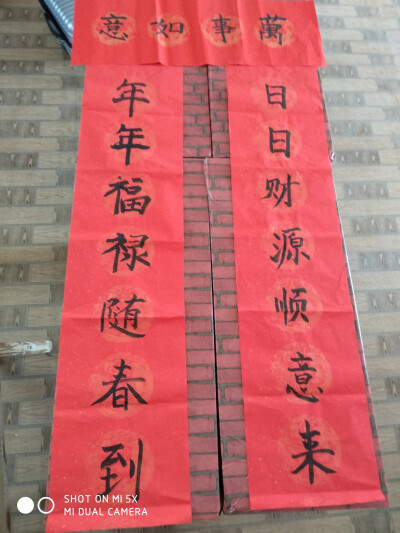 萬事如意
日日财源顺意来
年年福禄随春到
SHOT ON MI 5X
MI DUAL CAMERA